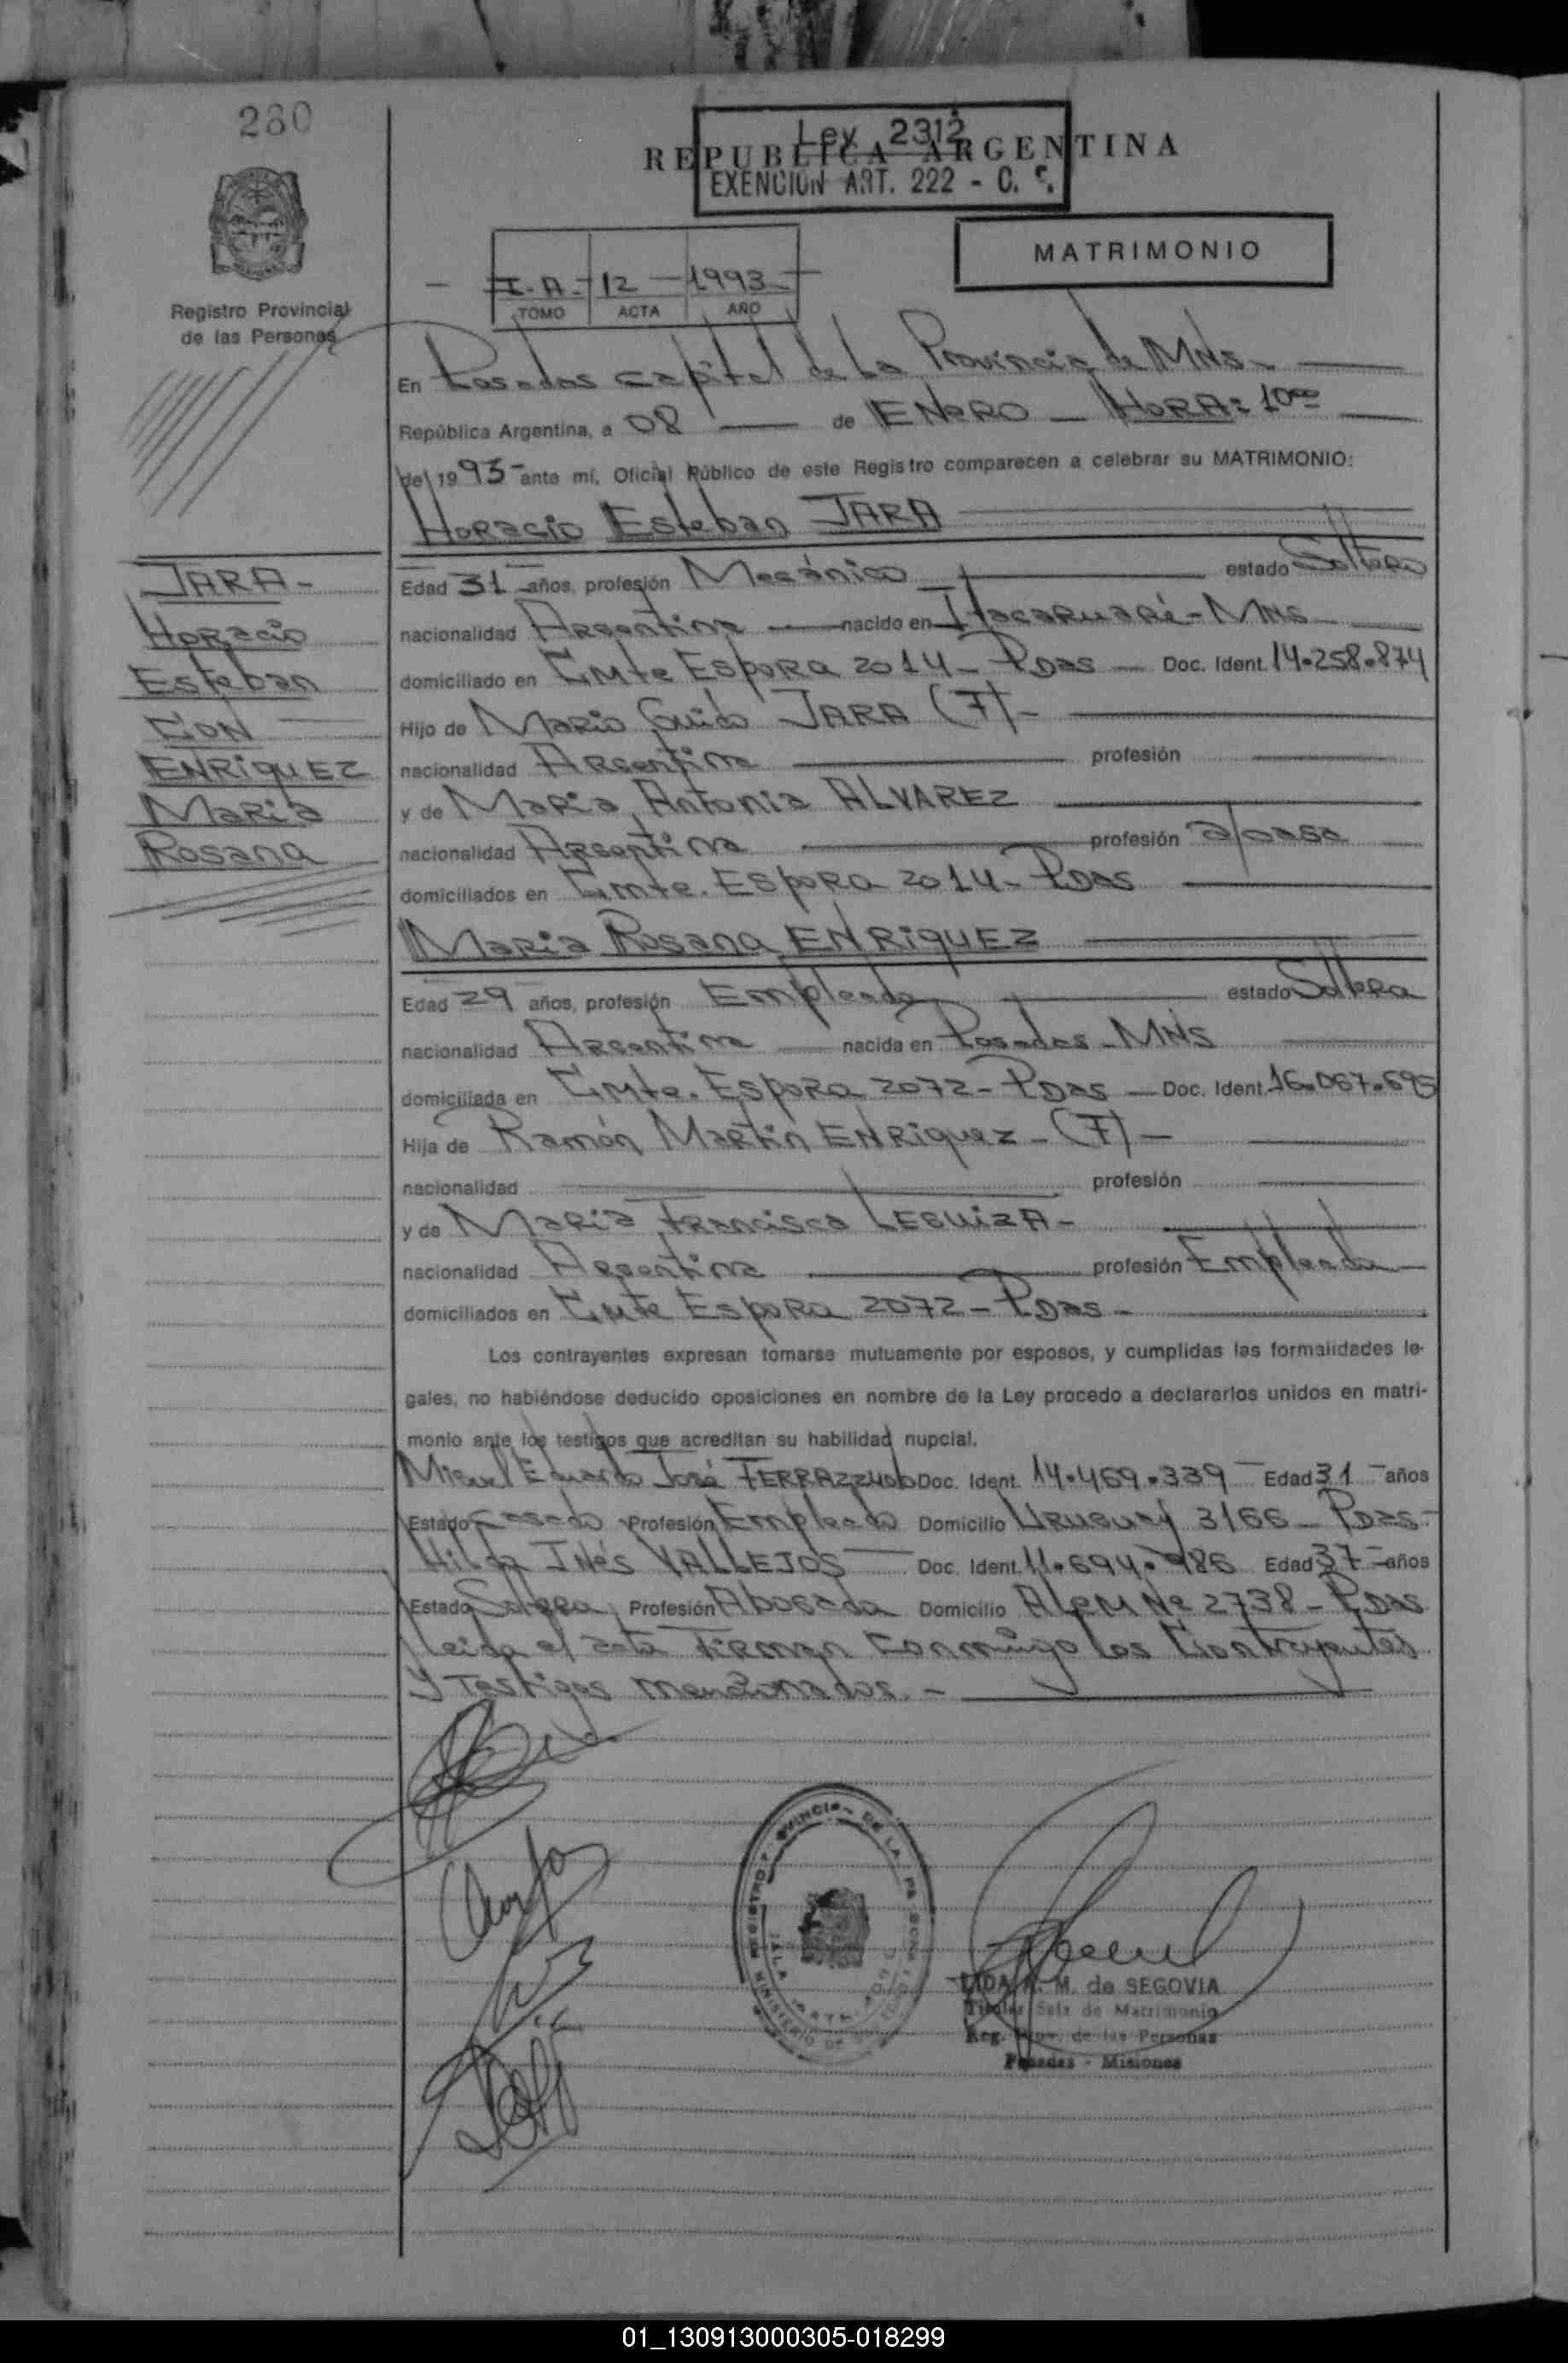 280
Ley 2312
REPUBLICA ARGENTINA
EXENCION ART. 222 - C.
MATRIMONIO
I.A - 12 - 1993 -
TOMO ACTA AÑO
Registro Provincial
de las Personas
En Posadas capital de La Provincia de MNS -
República Argentina, a 08 de ENERO - HORA: 10⁰⁰
de 1993 - ante mí, Oficial Público de este Registro comparecen a celebrar su MATRIMONIO:
Horacio Esteban JARA
JARA -
Horacio
Esteban
CON
ENRIQUEZ
Maria
Rosana
Edad 31 - años, profesión Mecánico estado Soltero
nacionalidad Argentina nacido en Itacaruaré - MNS
domiciliado en Cmte Espora 2014 - Pdas - Doc. Ident. 14.258.874
Hijo de Mario Guido JARA (F) -
nacionalidad Argentina profesión
y de Maria Antonia ALVAREZ
nacionalidad Argentina profesión a/casa
domiciliados en Cmte. Espora 2014 - Pdas
Maria Rosana ENRIQUEZ
Edad 29 años, profesión Empleada estado Soltera
nacionalidad Argentina nacida en Posadas - MNS
domiciliada en Cmte. Espora 2072 - Pdas - Doc. Ident. 16.067.695
Hija de Ramón Martin ENRIQUEZ - (F) -
nacionalidad profesión
y de Maria Francisca LEGUIZA -
nacionalidad Argentina profesión Empleada
domiciliados en Cmte Espora 2072 - Pdas -
Los contrayentes expresan tomarse mutuamente por esposos, y cumplidas las formalidades le-
gales, no habiéndose deducido oposiciones en nombre de la Ley procedo a declararlos unidos en matri-
monio ante los testigos que acreditan su habilidad nupcial.
Miguel Eduardo José Doc. Ident. 14.469.339 - Edad 31 - años
Estado casado Profesión Empleado Domicilio Uruguay 3166 - Pdas -
Hilda Inés VALLEJOS Doc. Ident. 11.694.986 Edad 37 - años
Estado Soltera Profesión Abogada Domicilio Alem Nº 2738 - Pdas
leida el acta Firman conmigo los Contrayentes
y Testigos mencionados. -
LIDA M. de SEGOVIA
Titular Sala de Matrimonio
Reg. Prov. de las Personas
Posadas - Misiones
01_130913000305-018299